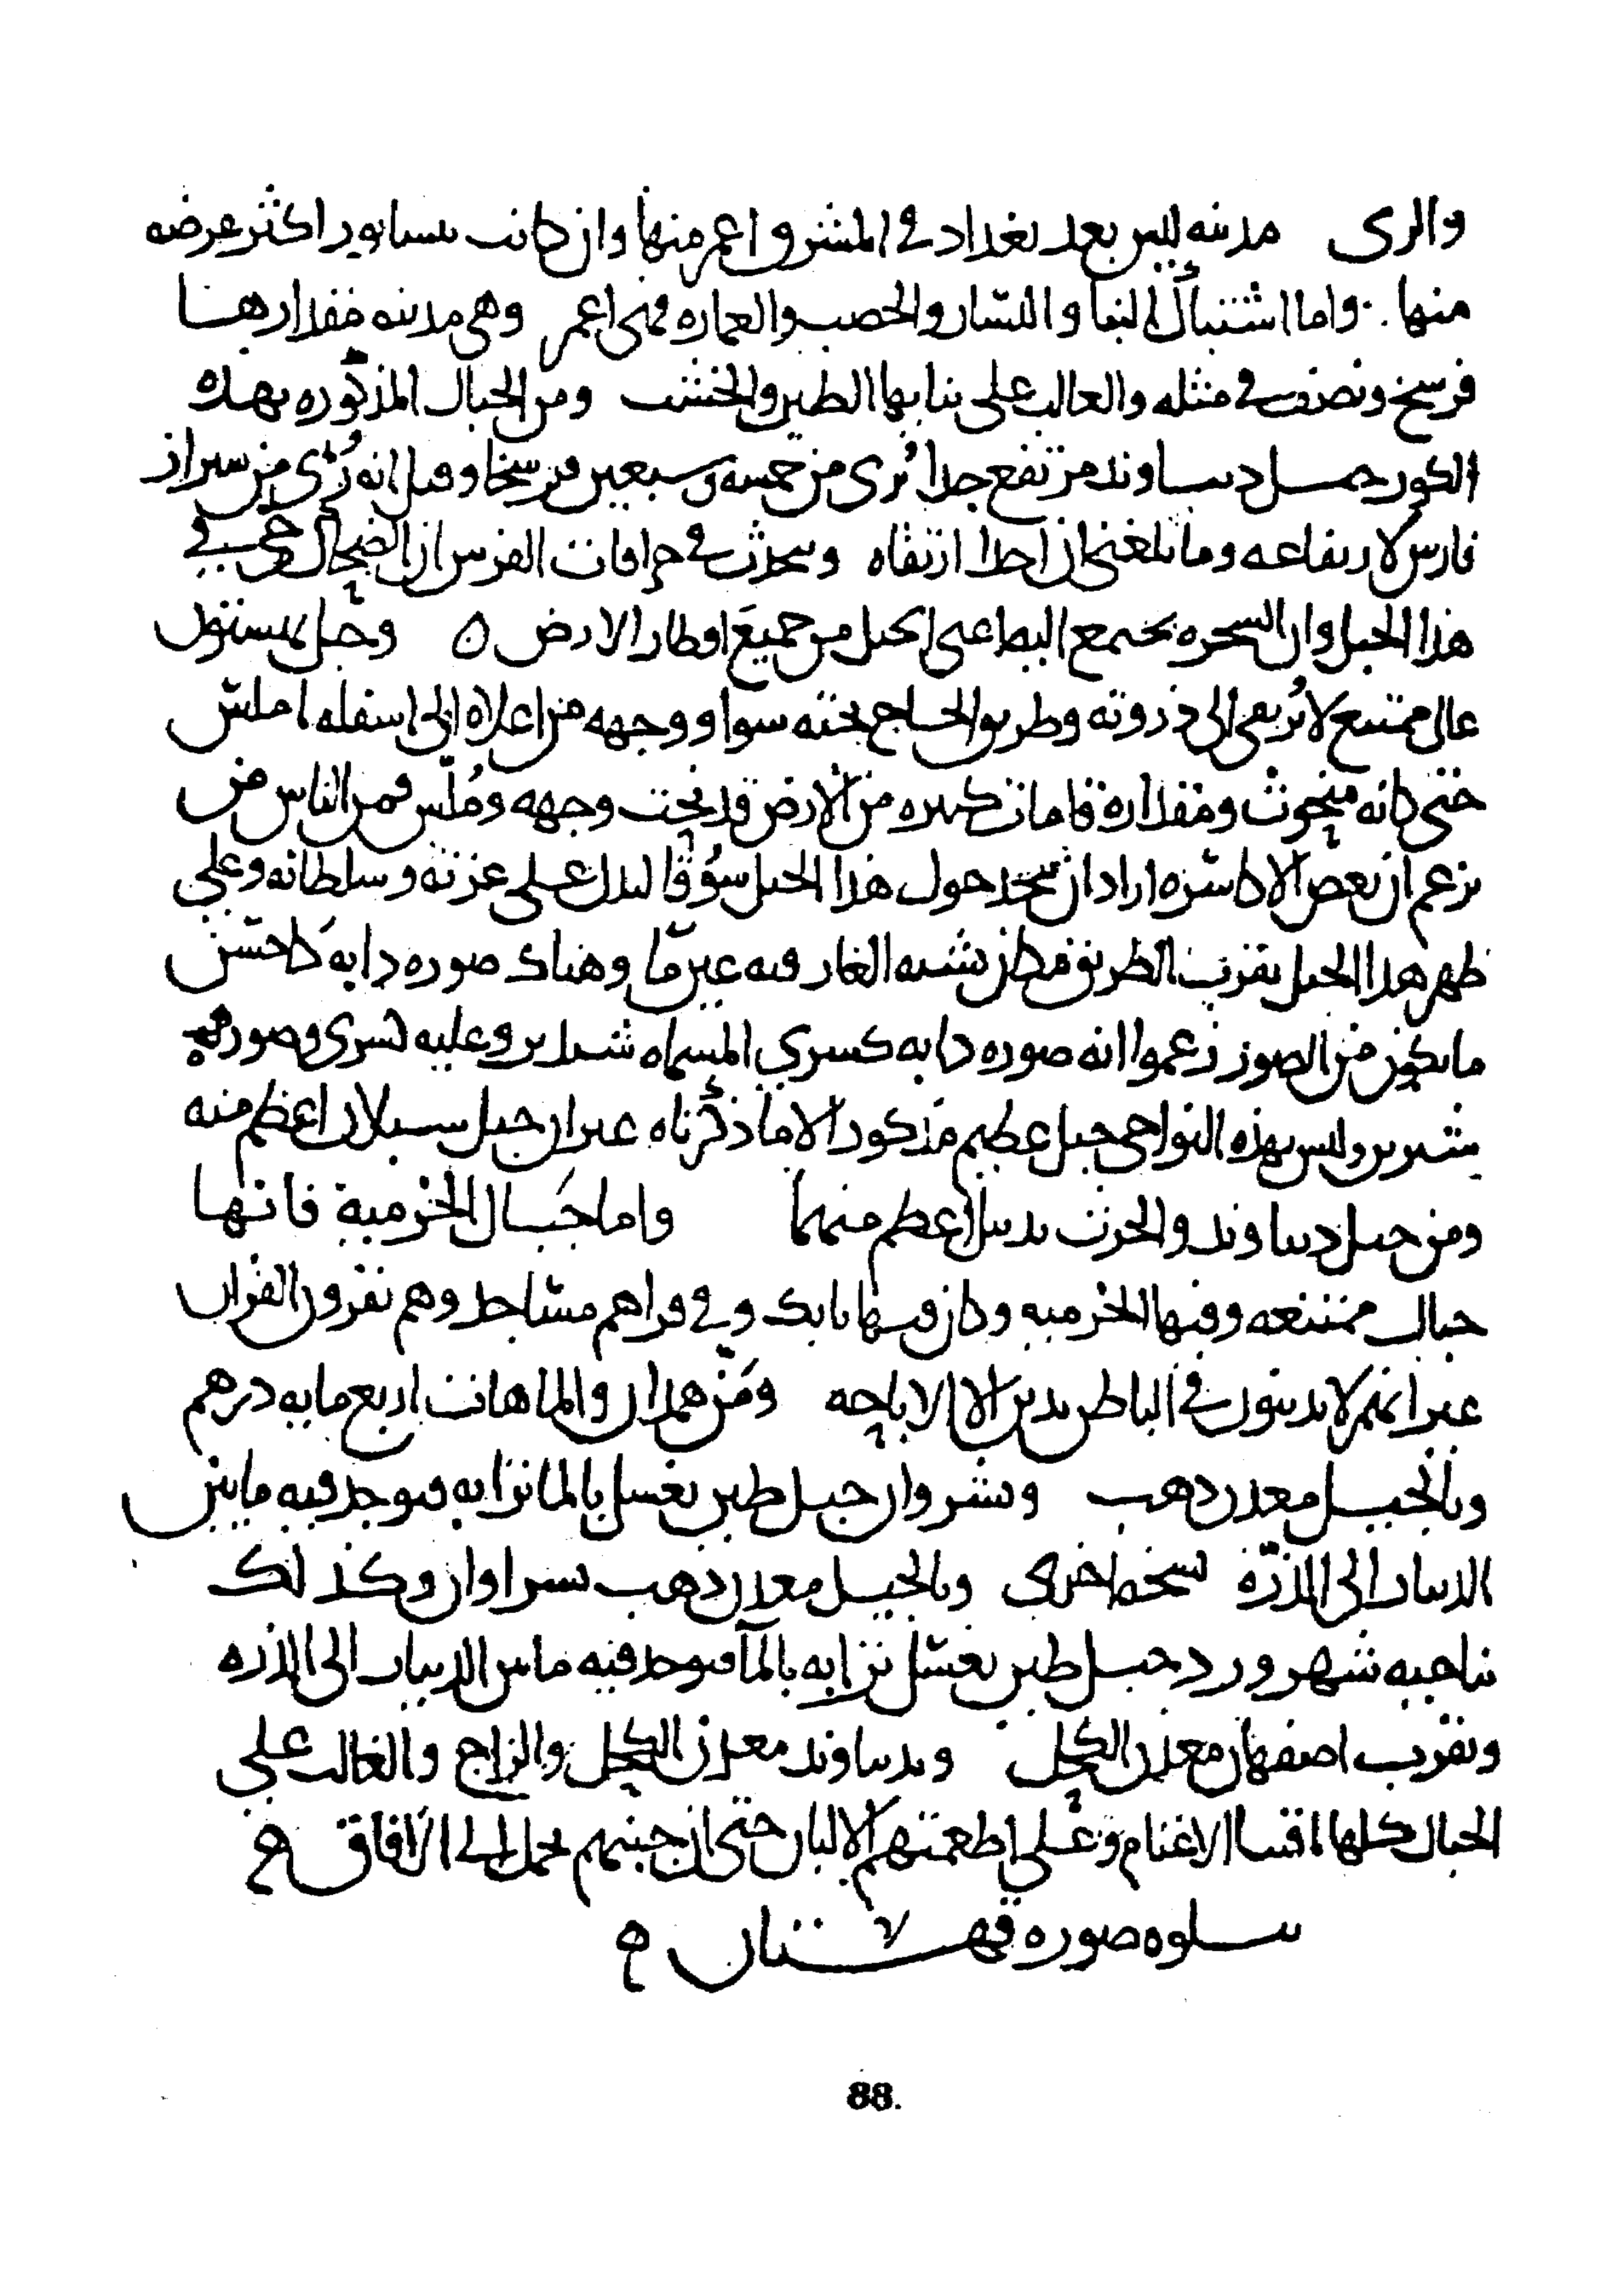 والرى مدينه ليس بعد بغداد في المشرق اعمر منها وان كانت نيسابور اكثر عرضه
منها . واما اشتباك البنا واليسار والخصب والعماره فهى اعمر وهى مدينه مقدارها
فرسخ ونصف في مثله والغالب على بنايها الطين والخشب ومن الجبال المذكوره بهذه
الكور جبل دنباوند مرتفع جدا يُرى من خمسه وسبعين فرسخا وقيل انه يُرى من شيراز
فارس لارتفاعه وما بلغنى ان احدا ارتقاه ويتحدث في خرافات الفرس ان الضحاك حي في
هذا الجبل وان السحره يجتمع اليه اعى الجبل من جميع اقطار الارض ن وجبل بيستون
عالى ممتنع لا يُرتقى الى ذروته وطريق الحاج تحته سوا ووجهه من اعلاه الى اسفله املس
حتى كانه منحوت ومقداره قامات كبيره من الارض قد نحت وجهه ومُلّس فمن الناس من
يزعم ان بعض الاكاسره اراد ان يتخذ حول هذا الجبل سُوقا ليدل على عزته وسلطانه وعلى
ظهر هذا الجبل بقرب الطريق مكان شبه الغار فيه عين ما وهناك صوره دابه كاحسن
ما يكون من الصور زعموا انه صوره دابه كسري المسماه شبديز وعليه كسرى وصورته
شيرين وليس بهذه النواحى جبل عظيم مذكور الا ما ذكرناه غير ان جبل سبلان اعظم منه
ومن جبل دنباوند والحرث بدبيل اعظم منهما واما جبال الخرمية فانها
جبال ممتنعه وفيها الخرميه وكان فيها بابك وفي قراهم مساجد وهم يقرون القران
غير انهم لا يدينون في الباطن بدين الا الاباحه ومَنّ همدان والماهات اربع مايه درهم
وبالجبل معدن ذهب وبشروان جبل طين يغسل بالما ترابه فيوجد فيه ما بين
الدينار الى الذرّه نسخه اخرى وبالجبل معدن ذهب بسراوان وكذلك
بناحيه شهرورد جبل طين يغسل ترابه بالمآ فيوجد فيه ما بين الدينار الى الذره
وبقرب اصفهان معدن الكحل وبدنباوند معدن الكحل والزاج والغالب على
الجبال كلها اقتنا الاغنام وعلى اطعمتهم الالبان حتى ان جبنهم يحمل الى الآفاق ح
يتلوه صوره قهستان ح
88.